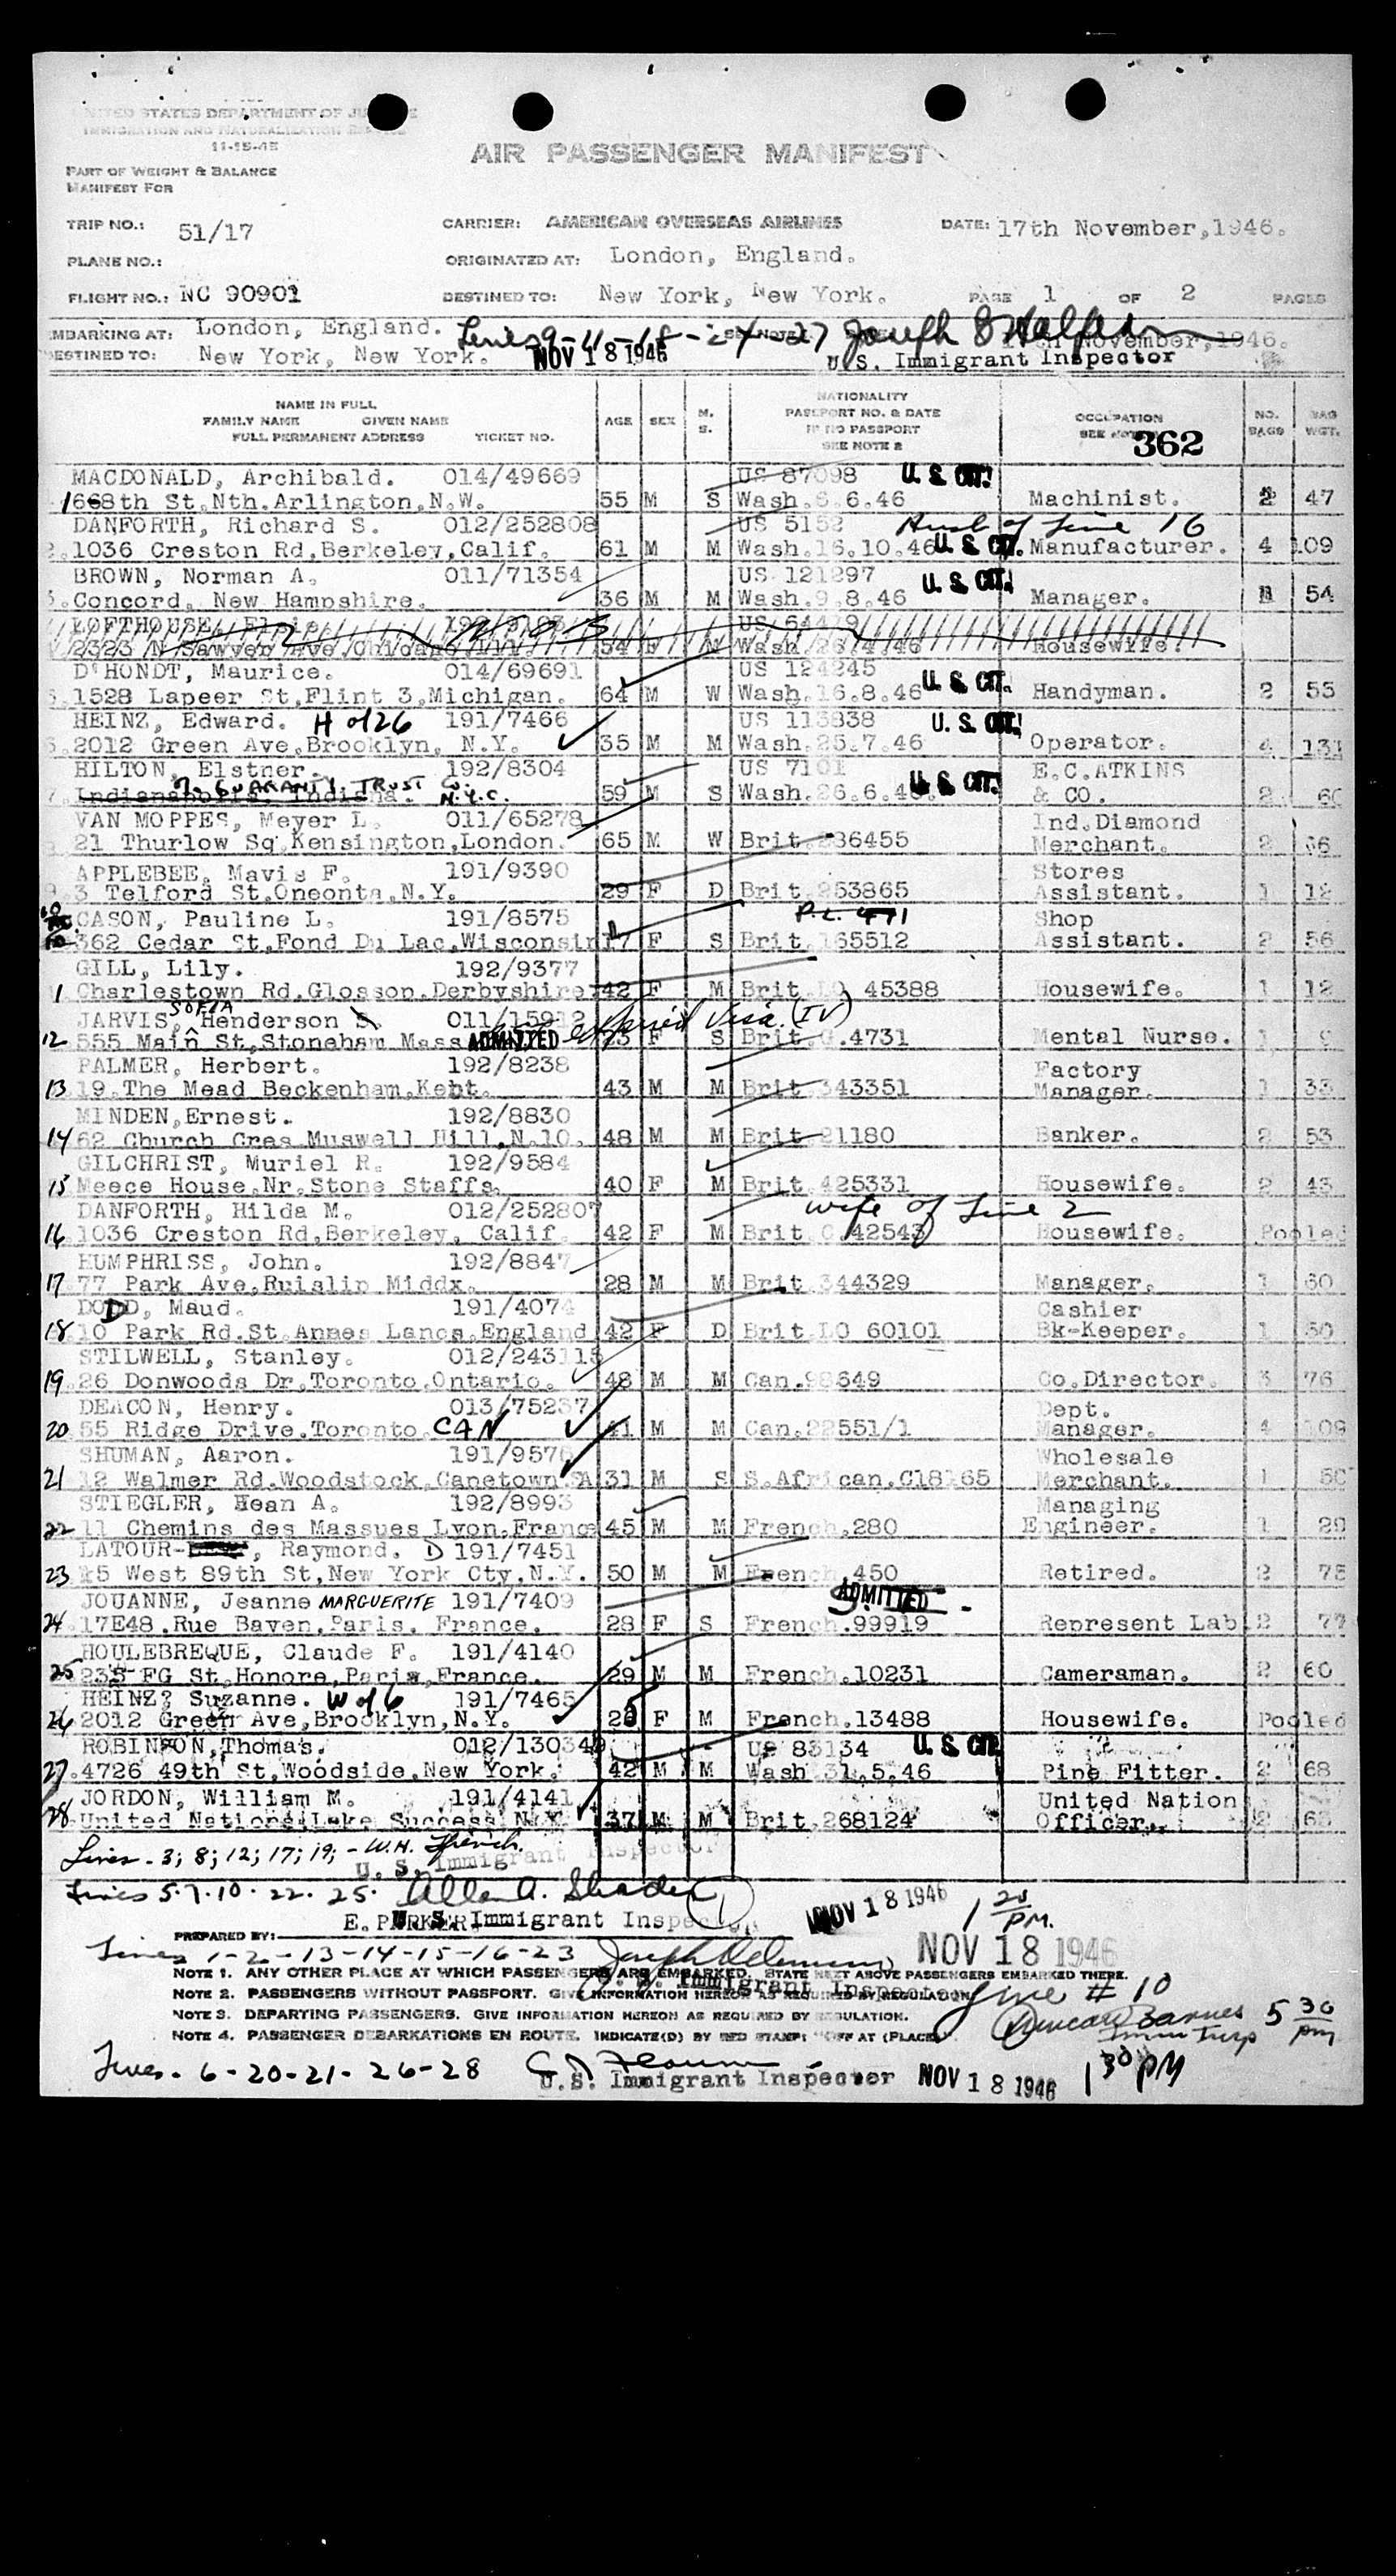 UNITED STATES DEPARTMENT OF JUSTICE
IMMIGRATION AND NATURALIZATION SERVICE
11-15-45
AIR PASSENGER MANIFEST
PART OF WEIGHT & BALANCE
MANIFEST FOR
TRIP NO.: 51/17 CARRIER: AMERICAN OVERSEAS AIRLINES DATE: 17th November,1946.
PLANE NO.: ORIGINATED AT: London, England.
FLIGHT NO.: NC 90901 DESTINED TO: New York, New York. PAGE 1 OF 2 PAGES
EMBARKING AT: London, England. Lines 9-11-18-24-27 November,1946.
DESTINED TO: New York, New York. NOV 18 1946 U.S. Immigrant Inspector
NAME IN FULL
FAMILY NAME GIVEN NAME
FULL PERMANENT ADDRESS TICKET NO. AGE SEX M. S. NATIONALITY PASSPORT NO. & DATE IF NO PASSPORT SEE NOTE 2 OCCUPATION SEE NOTE NO. BAGS BAG WGT.
362
MACDONALD, Archibald. 014/49669 US 87098 U.S. CIT.
1 668th St,Nth.Arlington,N.W. 55 M S Wash.6.6.46 Machinist. 2 47
DANFORTH, Richard S. 012/252808 US 5152 Husb of Line 16
2.1036 Creston Rd,Berkeley,Calif. 61 M M Wash.16.10.46 U.S. CIT. Manufacturer. 4 109
BROWN, Norman A. 011/71354 US 121297 U.S. CIT.
3.Concord, New Hampshire. 36 M M Wash.9.8.46 Manager. 54
LOFTHOUSE, Elsie. US 64419
2323 N Sawyer Ave,Chicago 54 F M Wash.26.4.46 Housewife.
D'HONDT, Maurice. 014/69691 US 124245
5.1528 Lapeer St,Flint 3,Michigan. 64 M W Wash.16.8.46 U.S. CIT. Handyman. 2 55
HEINZ, Edward. H of 26 191/7466 US 113838 U.S. CIT.
6.2012 Green Ave,Brooklyn, N.Y. 35 M M Wash.25.7.46 Operator. 4 131
HILTON, Elstner. 192/8304 US 7101 E.C.ATKINS
7.Indianapolis. Indiana. % GUARANTY TRUST Co. N.Y.C. 59 M S Wash.26.6.46. U.S. CIT. & CO. 2 60
VAN MOPPES, Meyer L. 011/65278 Ind.Diamond
21 Thurlow Sq.Kensington,London. 65 M W Brit.236455 Merchant. 2 56
APPLEBEE, Mavis F. 191/9390 Stores
9.3 Telford St.Oneonta,N.Y. 29 F D Brit.253865 Assistant. 1 12
CASON, Pauline L. 191/8575 P.L. 471 Shop
10 362 Cedar St,Fond Du Lac,Wisconsin 17 F S Brit.165512 Assistant. 2 56
GILL, Lily. 192/9377
11 Charlestown Rd.Glosson.Derbyshire 42 F M Brit.LO 45388 Housewife. 1 12
JARVIS, SOFIA Henderson S. 011/15912 Visa (IV)
12 555 Main St,Stoneham Mass ADMITTED 23 F S Brit.C.4731 Mental Nurse. 1 9
PALMER, Herbert. 192/8238 Factory
13 19.The Mead Beckenham,Kent. 43 M M Brit 343351 Manager. 1 33
MINDEN,Ernest. 192/8830
14 62 Church Cres Muswell Hill,N.10. 48 M M Brit 21180 Banker. 2 53
GILCHRIST, Muriel R. 192/9584
15 Meece House,Nr.Stone Staffs. 40 F M Brit.425331 Housewife. 2 43
DANFORTH, Hilda M. 012/252807 wife of Line 2
16 1036 Creston Rd,Berkeley, Calif. 42 F M Brit.C.42543 Housewife. Pooled
HUMPHRISS, John. 192/8847
17 77 Park Ave,Ruislip Middx. 28 M M Brit.344329 Manager. 1 60
DODD, Maud. 191/4074 Cashier
18 10 Park Rd.St.Annes Lancs,England 42 F D Brit.LO 60101 Bk-Keeper. 1 50
STILWELL, Stanley. 012/243115
19 26 Donwoods Dr,Toronto.Ontario. 48 M M Can.98649 Co.Director. 3 76
DEACON, Henry. 013/75237 Dept.
20 55 Ridge Drive.Toronto CAN 41 M M Can.22551/1 Manager. 4 109
SHUMAN, Aaron. 191/9576 Wholesale
21 12 Walmer Rd.Woodstock,Capetown SA 31 M S S.African.C18165 Merchant. 1 50
STIEGLER, Hean A. 192/8993 Managing
22 11 Chemins des Massues Lyon.France 45 M M French.280 Engineer. 1 29
LATOUR- , Raymond. D 191/7451
23 15 West 89th St,New York Cty,N.Y. 50 M M French 450 Retired. 2 75
JOUANNE, Jeanne MARGUERITE 191/7409 ADMITTED
24 17E48.Rue Baven.Paris. France. 28 F S French.99919 Represent Lab. 2 77
HOULEBREQUE, Claude F. 191/4140
25 235 FG St,Honore,Paris,France. 29 M M French.10231 Cameraman. 2 60
HEINZ, Suzanne. W of 6 191/7465
26 2012 Green Ave,Brooklyn,N.Y. 25 F M French.13488 Housewife. Pooled
ROBINSON,Thomas. 012/130349 US 83134 U.S. CIT.
27.4726 49th St,Woodside,New York. 42 M M Wash 31.5.46 Pipe Fitter. 2 68
JORDON, William M. 191/4141 United Nation
28 United Nations Lake Success N.Y. 37 M M Brit.268124 Officer. 2
Lines - 3; 8; 12; 17; 19; - W.H. French.
U. S. Immigrant Inspector
Lines 5.7.10.22.25. Allen A. 1
NOV 18 1946 1 25 PM.
E. PARKER U. S. Immigrant Inspector
PREPARED BY:
Lines 1-2-13-14-15-16-23 Joseph NOV 18 1946
NOTE 1. ANY OTHER PLACE AT WHICH PASSENGERS ARE EMBARKED. STATE NEXT ABOVE PASSENGERS EMBARKED THERE.
U. S. Immigrant Inspector Line # 10
NOTE 2. PASSENGERS WITHOUT PASSPORT. GIVE INFORMATION HEREON AS REQUIRED BY REGULATION.
NOTE 3. DEPARTING PASSENGERS. GIVE INFORMATION HEREON AS REQUIRED BY REGULATION.
Duncan Barnes Imm Insp 5 30 pm
NOTE 4. PASSENGER DEBARKATIONS EN ROUTE. INDICATE(D) BY RED STAMP: "OFF AT (PLACE)".
Lines - 6-20-21-26-28
U.S. Immigrant Inspector NOV 18 1946 1 30 PM